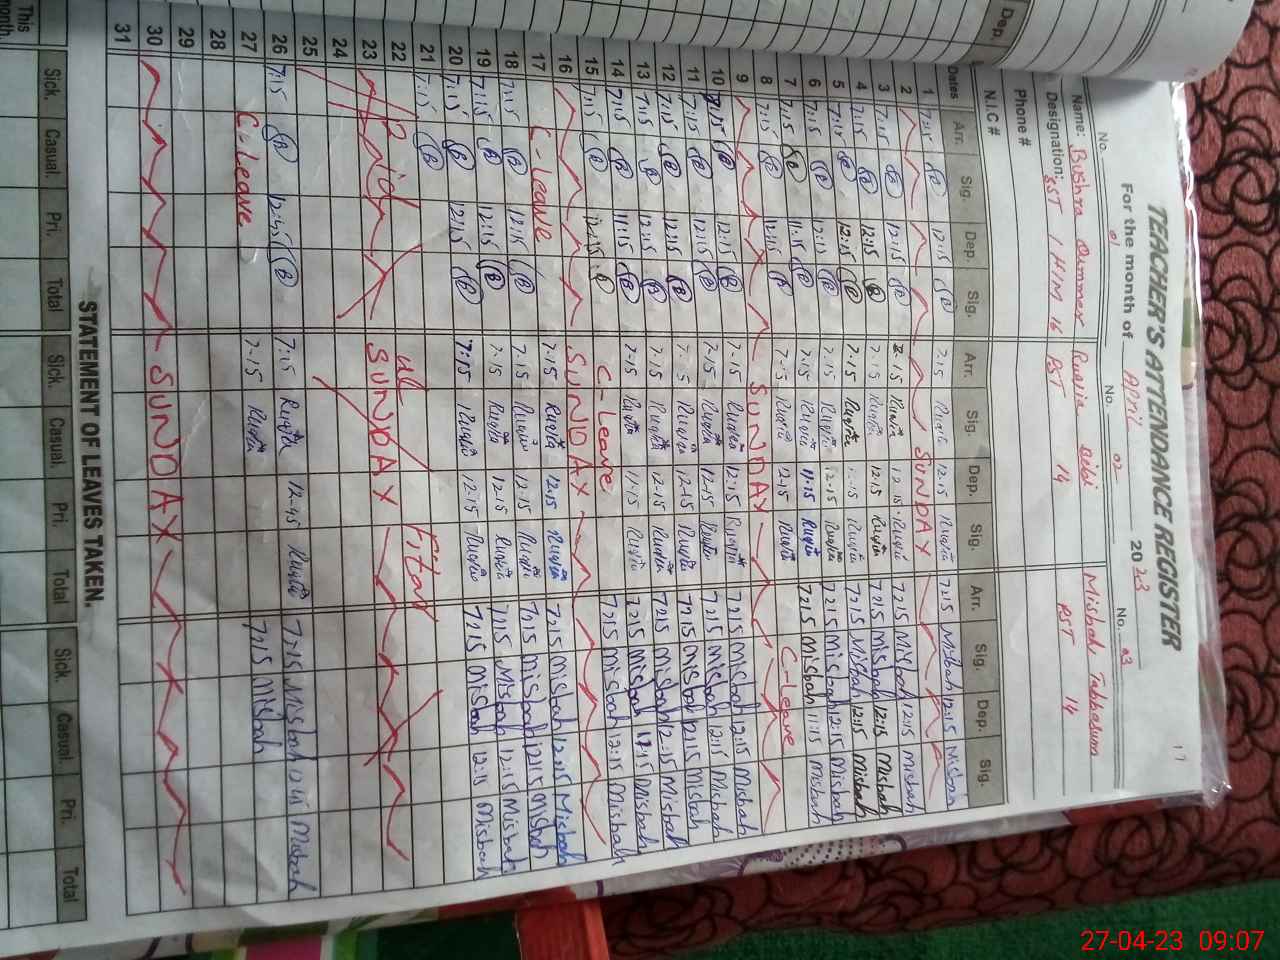 TEACHER'S ATTENDANCE REGISTER
17
For the month of APRIL 2023
No. 01 No. 02 No. 03
Name: Bushra Ruqia Bibi Misbah Tabbasum
Designation: SST 16 PST 14 PST 14
Phone #
N.I.C #
Dates Arr. Sig. Dep. Sig. Arr. Sig. Dep. Sig. Arr. Sig. Dep. Sig.
1 7:15 B 12:15 B Ruqia 12:15 Ruqia 7:15 Misbah 12:15 Misbah
2 SUNDAY
3 7:15 B 12:15 B 7:15 Ruqia 12:15 Ruqia 7:15 Misbah 12:15 Misbah
4 7:15 B 12:15 B 7:15 Ruqia 12:15 Ruqia 7:15 Misbah 12:15 Misbah
5 7:15 B 12:15 B 7:15 Ruqia 12:15 Ruqia 7:15 Misbah 12:15 Misbah
6 7:15 B 12:15 B 7:15 Ruqia 12:15 Ruqia 7:15 Misbah 12:15 Misbah
7 7:15 B 11:15 B 7:15 Ruqia 11:15 Ruqia 7:15 Misbah 11:15 Misbah
8 7:15 B 12:15 B 7:15 Ruqia 12:15 Ruqia C-Leave
9 SUNDAY
10 7:15 B 12:15 B 7:15 Ruqia 12:15 Ruqia 7:15 Misbah 12:15 Misbah
11 7:15 B 12:15 B 7:15 Ruqia 12:15 Ruqia 7:15 Misbah 12:15 Misbah
12 7:15 B 12:15 B 7:15 Ruqia 12:15 Ruqia 7:15 Misbah 12:15 Misbah
13 7:15 B 12:15 B 7:15 Ruqia 12:15 Ruqia 7:15 Misbah 12:15 Misbah
14 7:15 B 11:15 B 7:15 Ruqia 11:15 Ruqia 7:15 Misbah 12:15 Misbah
15 7:15 B 12:15 B C-Leave
16 SUNDAY
17 C-Leave 7:15 Ruqia 12:15 Ruqia 7:15 Misbah 12:15 Misbah
18 7:15 B 12:15 B 7:15 Ruqia 12:15 Ruqia 7:15 Misbah 12:15 Misbah
19 7:15 B 12:15 B 7:15 Ruqia 12:15 Ruqia 7:15 Misbah 12:15 Misbah
20 7:15 B 12:15 B 7:15 Ruqia 12:15 Ruqia 7:15 Misbah 12:15 Misbah
21 7:15 B
22 ul Fitar
23 SUNDAY
24
25
26 7:15 B 12:45 B 7:15 Ruqia 12:45 Ruqia 7:15 Misbah Misbah
27 C-Leave 7:15 Ruqia 7:15 Misbah
28
29
30 SUNDAY
31
STATEMENT OF LEAVES TAKEN.
Sick. Casual. Pri. Total Sick. Casual. Pri. Total Sick. Casual. Pri. Total
This month
Dep.
27-04-23 09:07